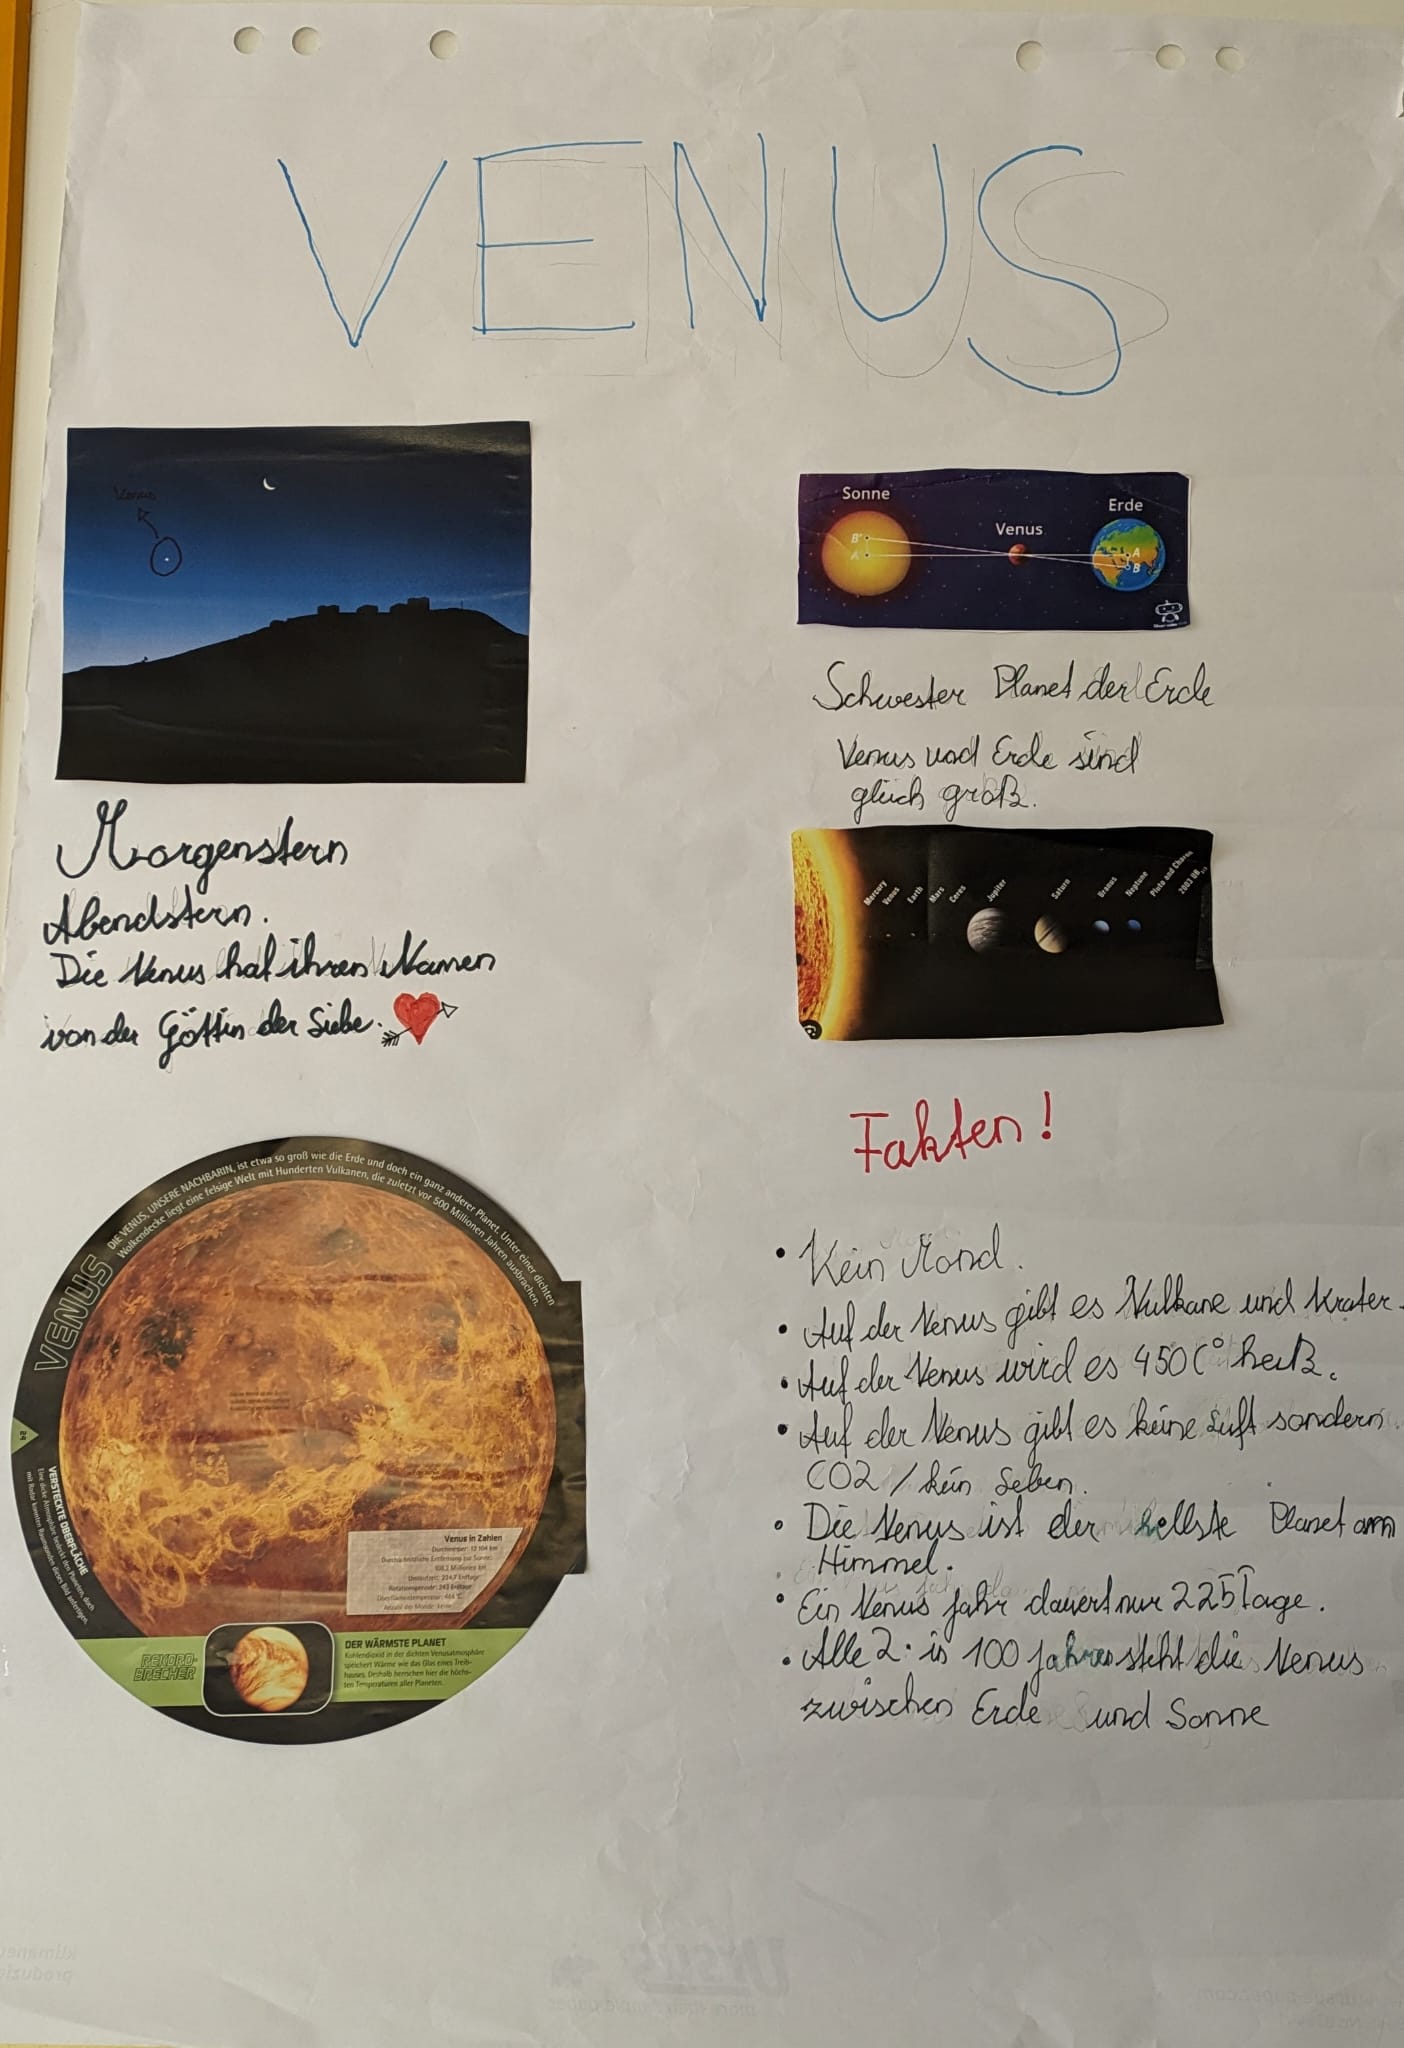 VENUS
Venus
Morgenstern
Abendstern.
Die Venus hat ihren Namen
von der Göttin der Liebe.
Sonne
Venus
Erde
B'
A'
A
B
Schwester Planet der Erde
Venus und Erde sind
gleich groß.
Mercury
Venus
Earth
Mars
Ceres
Jupiter
Saturn
Uranus
Neptune
Pluto and Charon
2003 UB
VENUS
DIE VENUS, UNSERE NACHBARIN, ist etwa so groß wie die Erde und doch ein ganz anderer Planet. Unter einer dichten
Wolkendecke liegt eine felsige Welt mit Hunderten Vulkanen, die zuletzt vor 500 Millionen Jahren ausbrachen.
24
VERSTECKTE OBERFLÄCHE
Eine dicke Atmosphäre bedeckt den Planeten, doch
mit Radar konnten Raumsonden dieses Bild anfertigen.
Venus in Zahlen
Durchmesser: 12 104 km
Durchschnittliche Entfernung zur Sonne:
108,2 Millionen km
Umlaufzeit: 224,7 Erdtage
Rotationsperiode: 243 Erdtage
Oberflächentemperatur: 464 °C
Anzahl der Monde: keine
REKORD-
BRECHER
DER WÄRMSTE PLANET
Kohlendioxid in der dichten Venusatmosphäre
speichert Wärme wie das Glas eines Treib-
hauses. Deshalb herrschen hier die höchs-
ten Temperaturen aller Planeten.
Fakten!
• Kein Mond.
• Auf der Venus gibt es Vulkane und Krater.
• Auf der Venus wird es 450 C° heiß.
• Auf der Venus gibt es keine Luft sondern
CO2 / kein Leben.
• Die Venus ist der hellste Planet am
Himmel.
• Ein Venus jahr dauert nur 225 Tage.
• Alle 2. in 100 jahren steht die Venus
zwischen Erde und Sonne